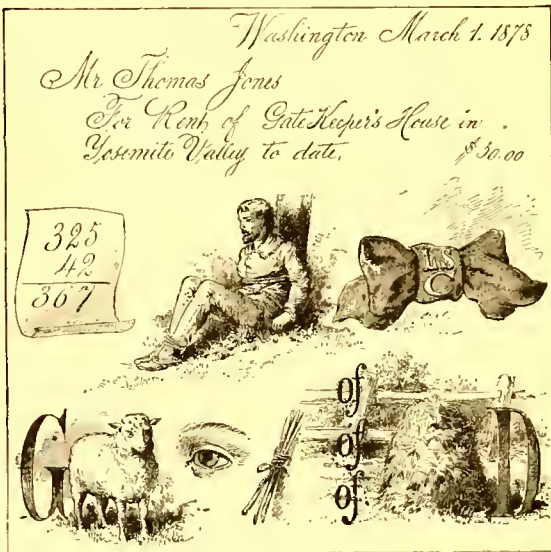 Washington March 1. 1878
Mr Thomas Jones
For Rent of Gate Keeper's House in
Yosemite Valley to date. $50.00
325
42
367
LS
C
G
of
of
of
D